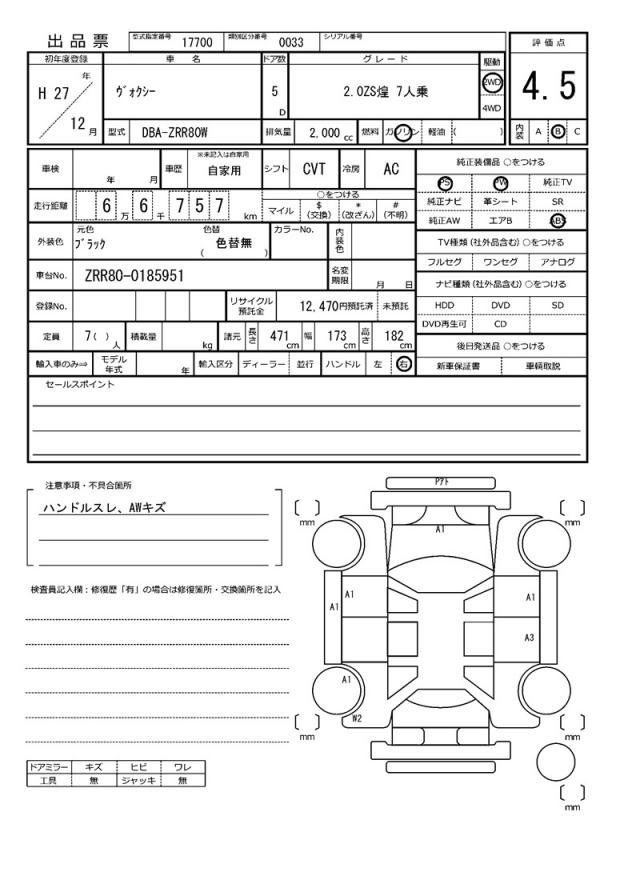 出品票 型式指定番号 17700 類別区分番号 0033 シリアル番号
初年度登録 車 名 ドア数 グレード 駆動 評価点
H 27 年 ヴォクシー 5 D 2.0ZS煌 7人乗 2WD 4.5
4WD
12 月 型式 DBA-ZRR80W 排気量 2,000 cc 燃料 ガソリン 軽油 ( ) 内装 A B C
車検 年 月 車歴 ※未記入は自家用 自家用 シフト CVT 冷房 AC 純正装備品 ○をつける
PS PW 純正TV
走行距離 6 万 6 千 7 5 7 km ○をつける 純正ナビ 革シート SR
マイル $(交換) *(改ざん) #(不明) 純正AW エアB ABS
外装色 元色 ブラック 色替 色替無 ( ) カラーNo. 内装色 TV種類(社外品含む)○をつける
フルセグ ワンセグ アナログ
車台No. ZRR80-0185951 名変期限 月 日 ナビ種類(社外品含む)○をつける
登録No. リサイクル預託金 12,470円預託済 未預託 HDD DVD SD
DVD再生可 CD
定員 7( ) 人 積載量 kg 諸元 長さ 471 cm 幅 173 cm 高さ 182 cm 後日発送品 ○をつける
輸入車のみ⇒ モデル年式 年 輸入区分 ディーラー 並行 ハンドル 左 右 新車保証書 車輌取説
セールスポイント
注意事項・不具合箇所
ハンドルスレ、AWキズ
検査員記入欄:修復歴「有」の場合は修復箇所・交換箇所を記入
Pアト
mm mm
A1
A1 A1 A1
A3
A1
W2
mm mm
mm
ドアミラー キズ ヒビ ワレ
工具 無 ジャッキ 無